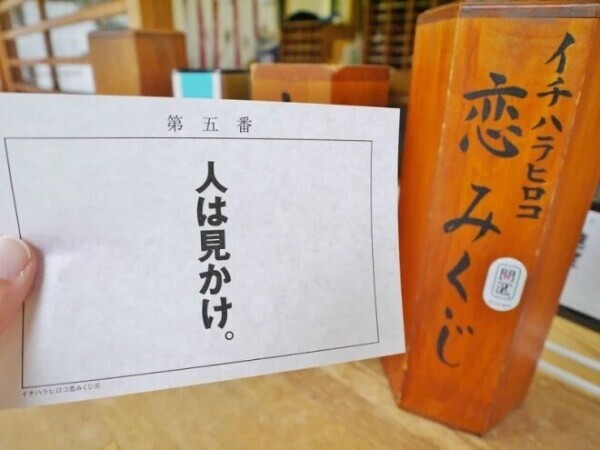 第五番
人は見かけ。
イチハラヒロコ恋みくじ
イチハラヒロコ
恋みくじ
開運